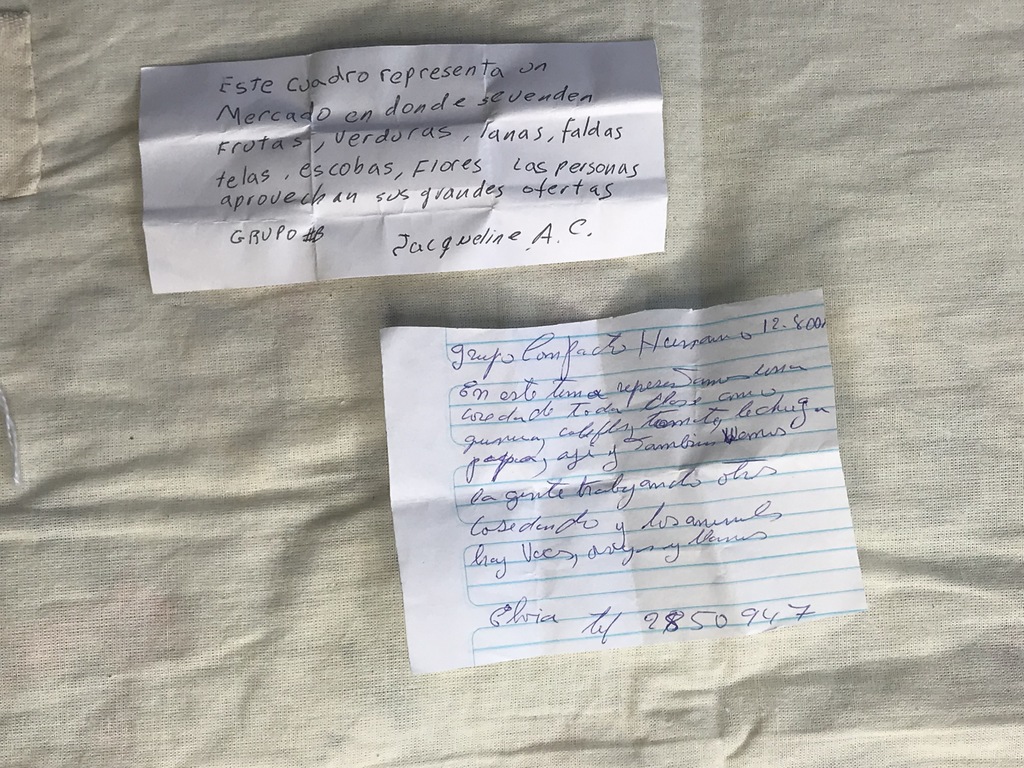 Este cuadro representa un
Mercado en donde se venden
Frutas, verduras, lanas, faldas
telas, escobas, Flores Las personas
aprovechan sus grandes ofertas
GRUPO #B
Jacqueline A.C.
grupo Compacto Humano
En este tema representamos una
cosecha de toda Clase como
quinua, coliflor, tomate, lechuga
papa, aji y Tambien Vemos
la gente trabajando otros
Cosechando y los animales
hay Vacas, ovejas y llamas
Elvia tel 2850947